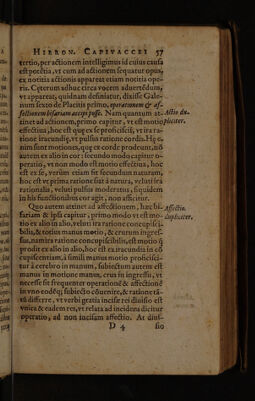 HIERON. CAPIVACCEI 57
tertio, per actionem intelligimus id cuius causa
est potestia, vt cum ad actionem sequatur opus,
ex notitia actionis appareat etiam notitia ope-
ris. Cęterum adhuc circa vocem aduertēdum,
vt appareat, quidnam definiatur, dixisse Gale-
num sexto de Placitis primo, operationem & af-
fectionem bifariam accipi posse. Nam quantum at-
tinet ad actionem, primo capitur, vt est motio
effectiua, hoc est quę ex se proficiscit, vt ira ra-
tione iracundię, vt pulsus ratione cordis. Hę e-
nim sunt motiones, quę ex corde prodeunt, nō
autem ex alio in cor: secundo modo capitur o-
peratio, vt non modo est motio effectiua, hoc
est ex se, verùm etiam sit secundùm naturam,
hoc est ve prima ratione fiat à natura, veluti ira
rationalis, veluti pulsus moderatus, siquidem
in his functionibus cor agit, non afficitur.
Quo autem attinet ad affectionem, hæc bi-
fariam & ipsa capitur, primo modo vt est mo-
tio ex alio in alio, veluti ira ratione concupisci-
bilis, & totius manus motio, & crurum ingres-
sus, nam ira ratione concupiscibilis, est motio q̃
prodit ex alio in alio, hoc est ex iracundo in cō
cupiscentiam, à simili manus motio proficisci-
tur à cerebro in manum, subiectum autem est
manus in motione manus, crus in ingressu, vt
necesse sit frequenter operationē & affectionē
in vno eodēq; subiecto cōuenire, & ratione tā-
tū differre, vt verbi gratia incisæ rei diuisio est
vnica & eadem res, vt relata ad incidens dicitur
operatio, ad non incisam affectio. At diui-
D 4 sio
Actio du-
pliciter.
Affectio
dupliciter.